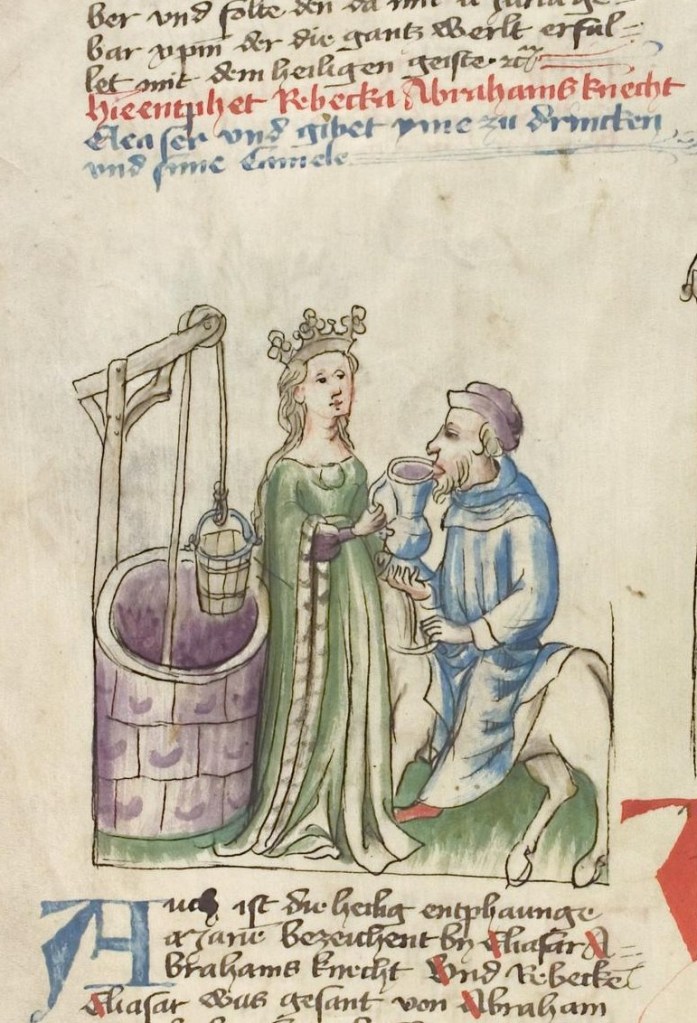 ber vnd solte den da mit
bar vom der die gantz werlt erful=
let mit dem heiligen geiste ·
Hie entphet Rebecka Abrahams knecht
Eleaser vnd gibet yme zu drincken
vnd sine Camele
Auch ist die heilig entphaunge
Marie bezeichent by Eliasar A=
brahams knecht Vnd Rebecke
Eliasar was gesant von Abraham